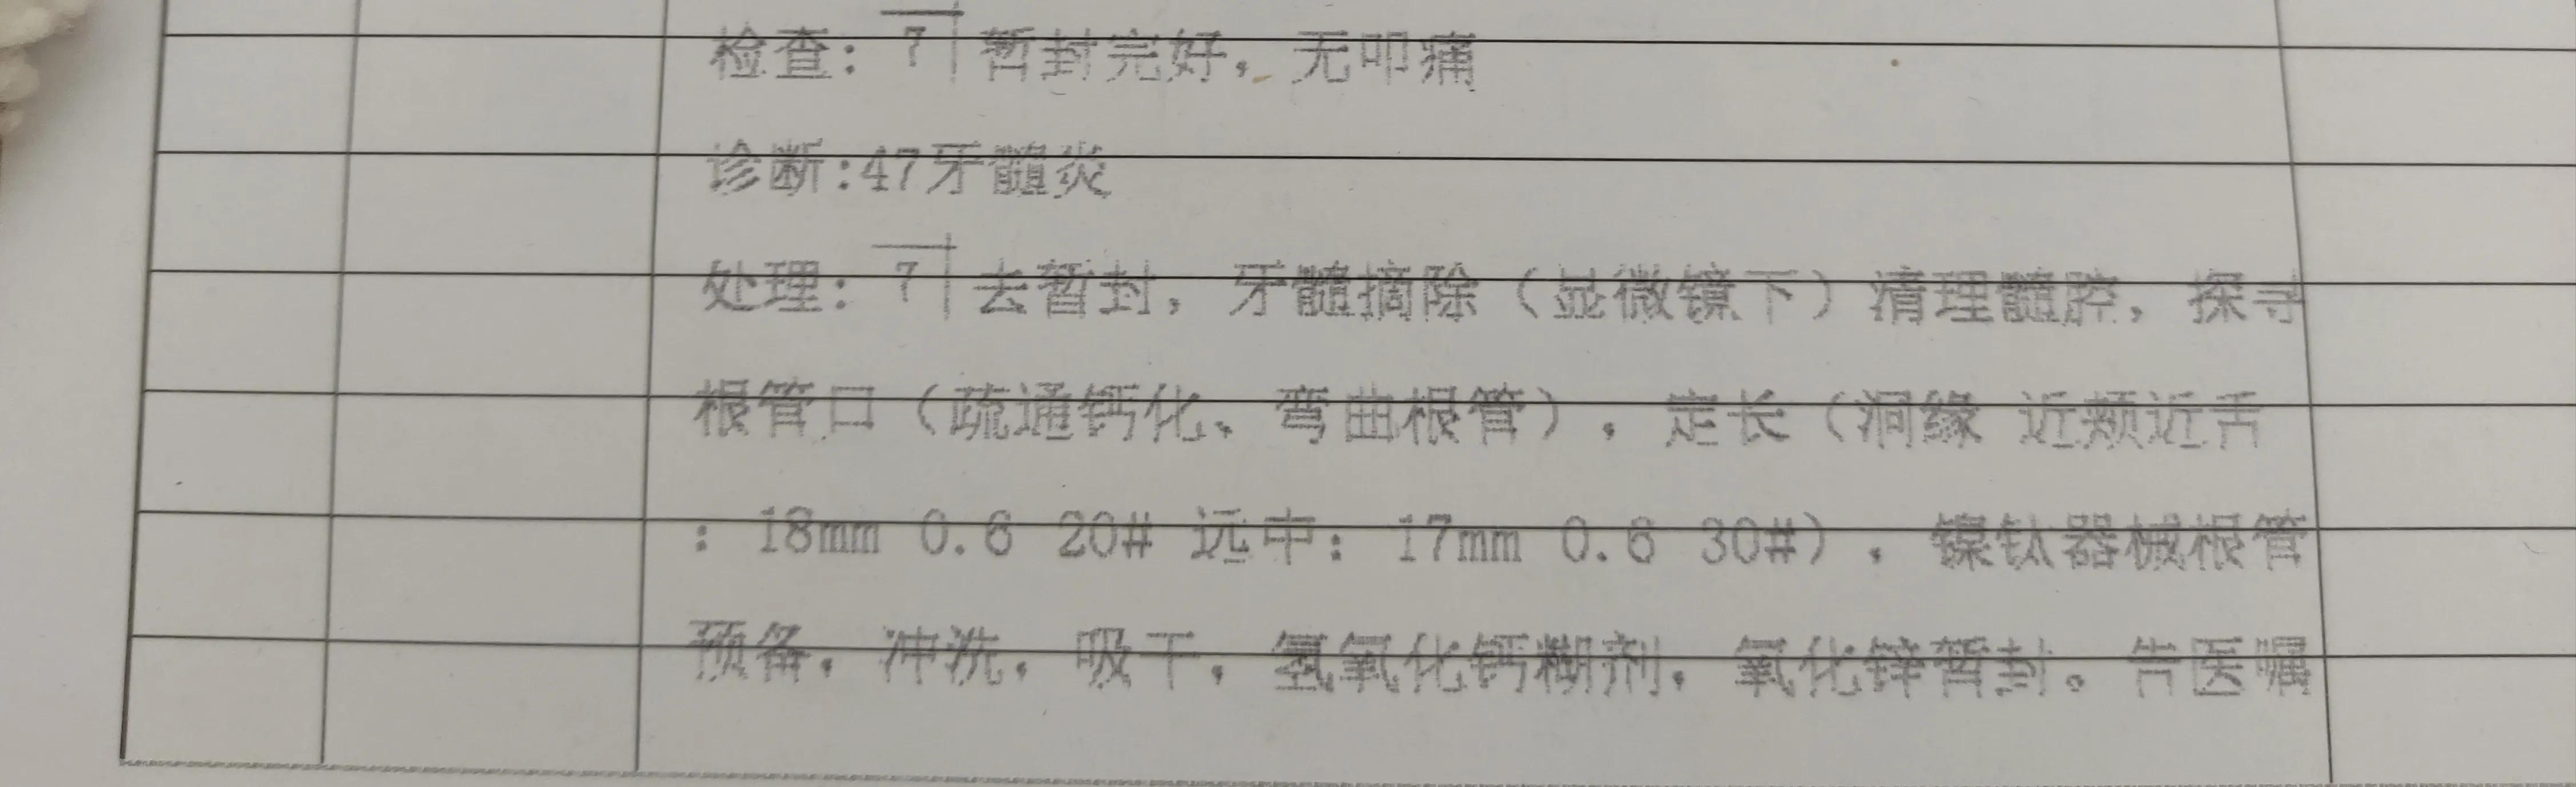 检查: 7| 暂封完好，无叩痛
诊断:47牙髓炎
处理: 7| 去暂封，牙髓摘除（显微镜下）清理髓腔，探寻
根管口（疏通钙化、弯曲根管），定长（洞缘 近颊近舌
: 18mm 0.6 20# 远中: 17mm 0.6 30#），镍钛器械根管
预备，冲洗，吸干，氢氧化钙糊剂，氧化锌暂封。告医嘱